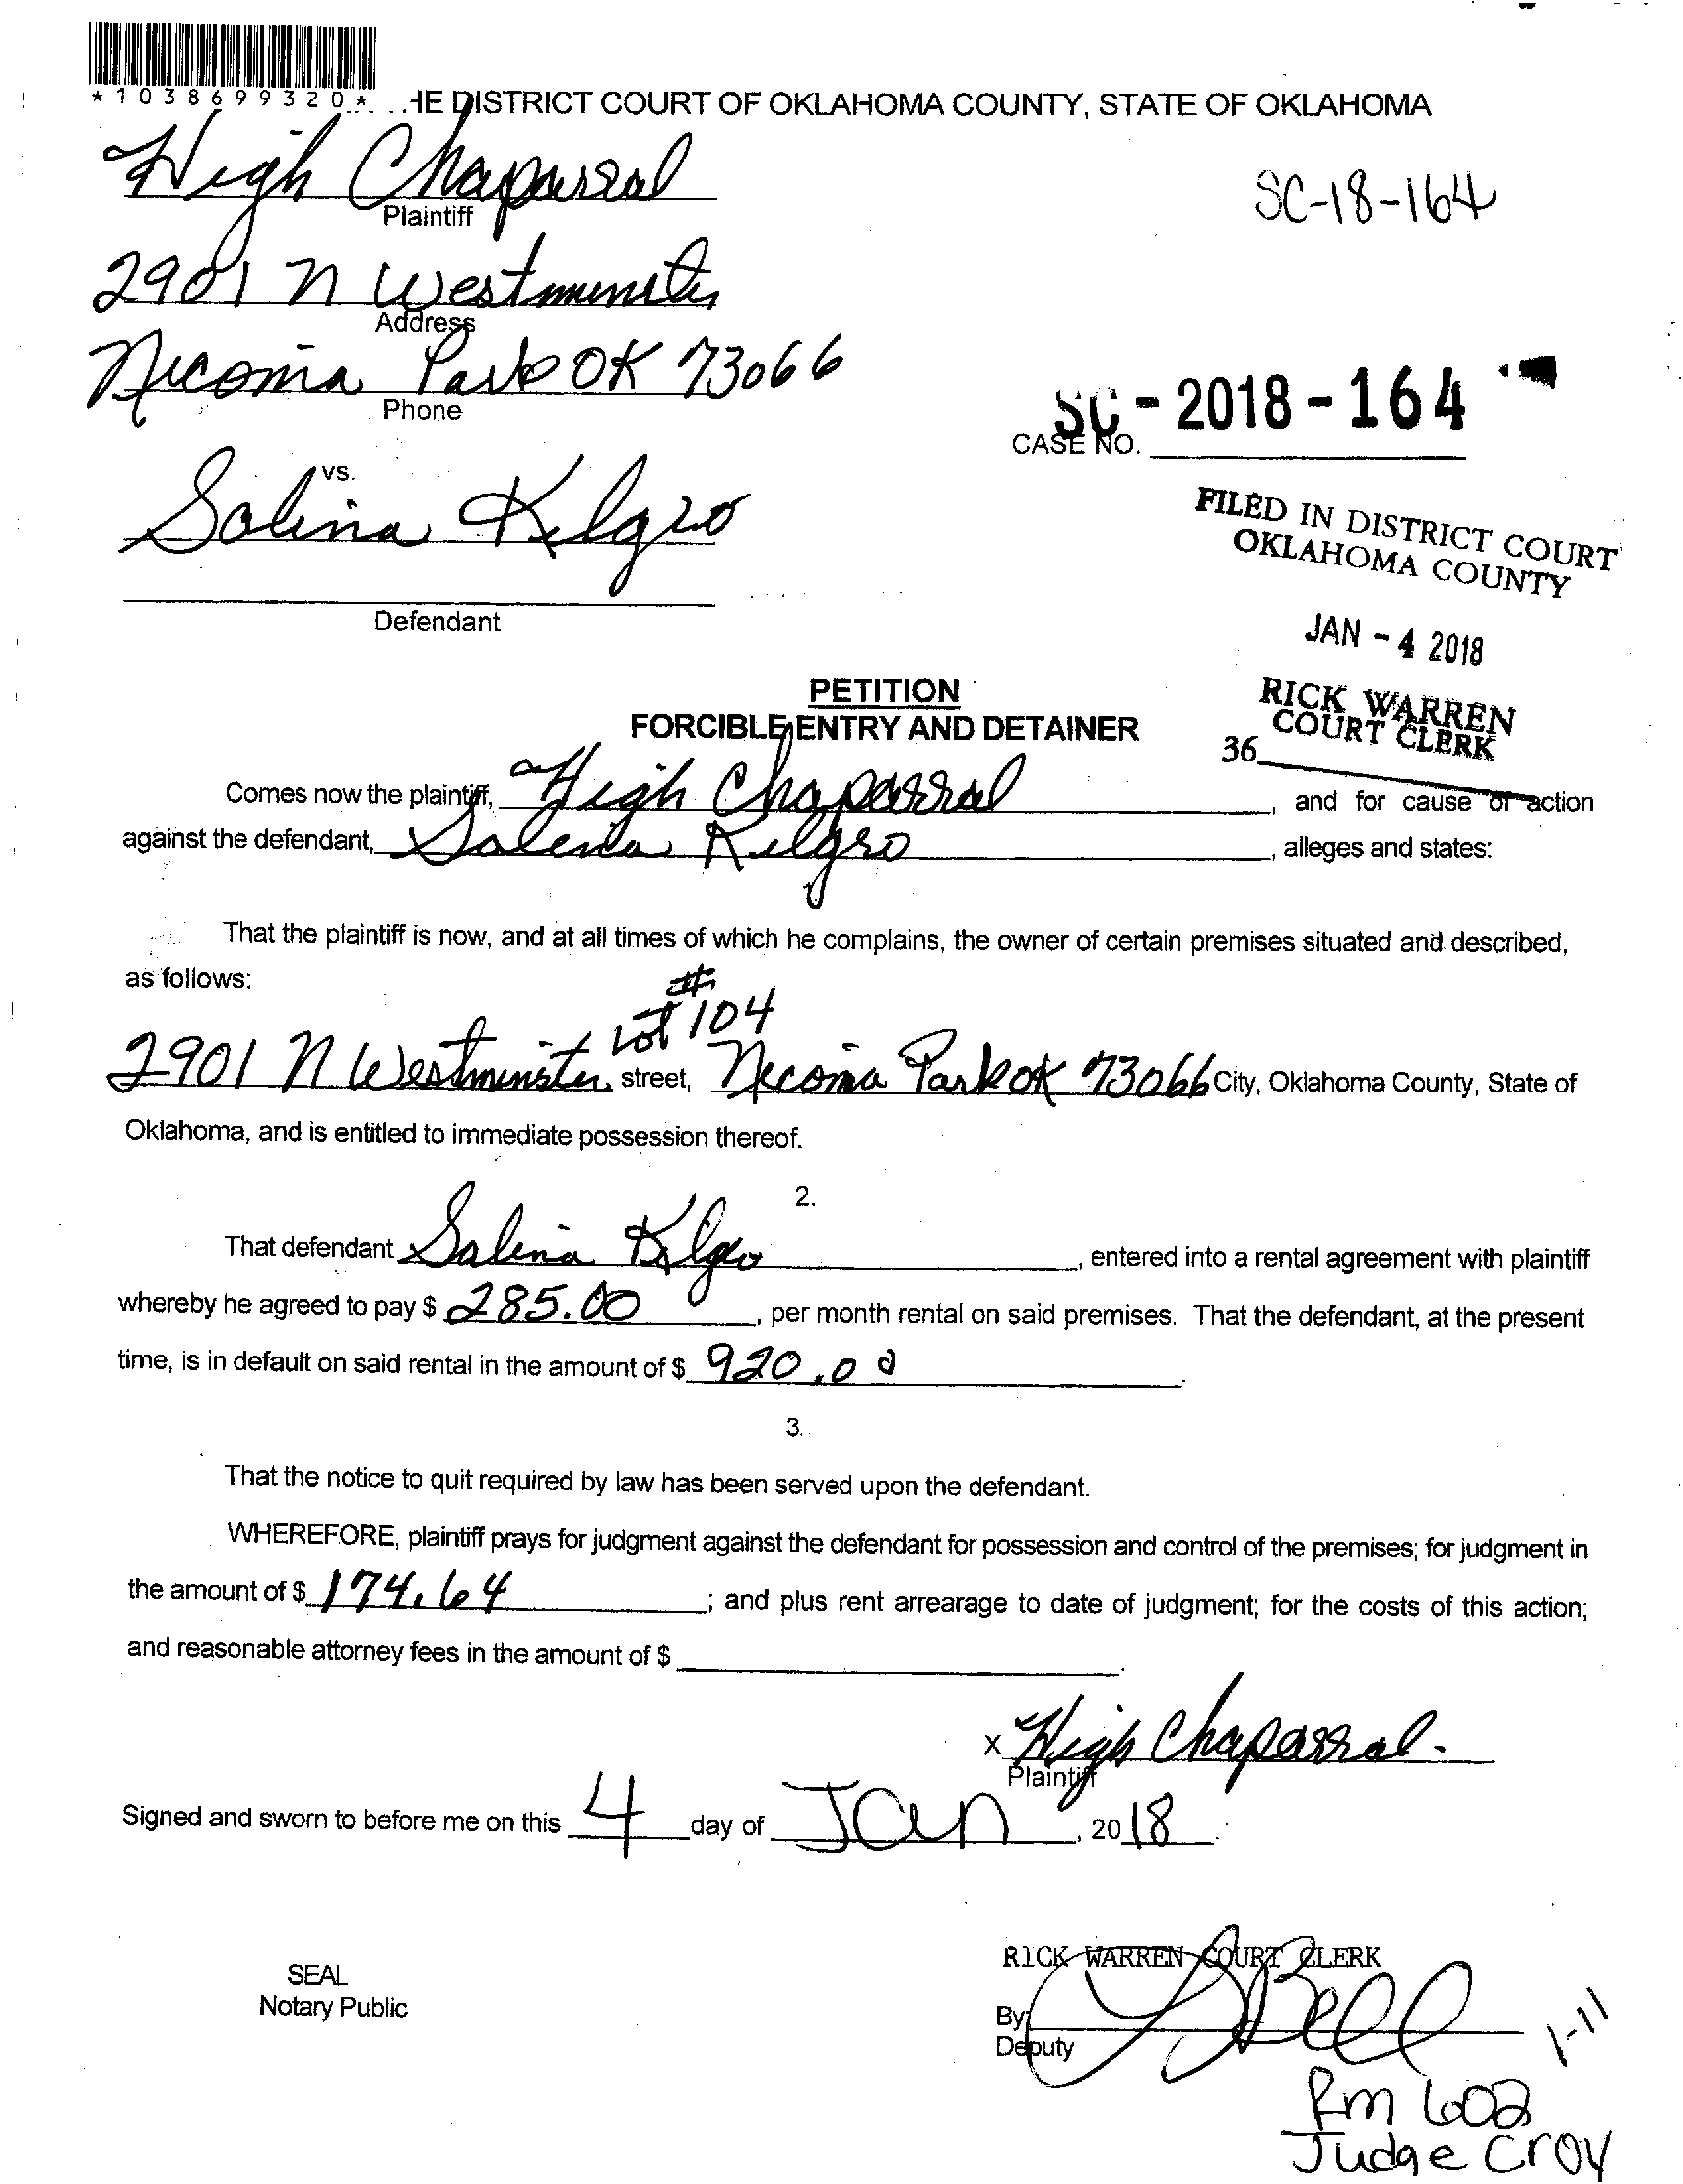 *1038699320*
HE DISTRICT COURT OF OKLAHOMA COUNTY, STATE OF OKLAHOMA
High Chaparral
Plaintiff
SC-18-164
2901 N Westminster
Address
Nicoma Park OK 73066
Phone
SC-2018-164
CASE NO.
vs.
Salina Kilgro
Defendant
FILED IN DISTRICT COURT
OKLAHOMA COUNTY
JAN -4 2018
RICK WARREN
COURT CLERK
36
PETITION
FORCIBLE ENTRY AND DETAINER
Comes now the plaintiff, High Chaparral, and for cause of action
against the defendant, Salina Kilgro, alleges and states:
That the plaintiff is now, and at all times of which he complains, the owner of certain premises situated and described,
as follows:
2901 N Westminster Lot #104 street, Nicoma Park OK 73066 City, Oklahoma County, State of
Oklahoma, and is entitled to immediate possession thereof.
2.
That defendant Salina Kilgro, entered into a rental agreement with plaintiff
whereby he agreed to pay $ 285.00, per month rental on said premises. That the defendant, at the present
time, is in default on said rental in the amount of $ 920.00.
3.
That the notice to quit required by law has been served upon the defendant.
WHEREFORE, plaintiff prays for judgment against the defendant for possession and control of the premises; for judgment in
the amount of $ 174.64; and plus rent arrearage to date of judgment; for the costs of this action;
and reasonable attorney fees in the amount of $
x High Chaparral.
Plaintiff
Signed and sworn to before me on this 4 day of Jan, 2018.
SEAL
Notary Public
RICK WARREN COURT CLERK
By
Deputy
Bell
1-11
Rm 602
Judge Croy